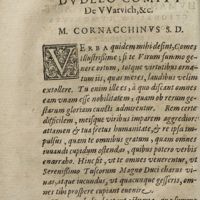 DVDLEO COMITI
De VVarvich, &c.
M. CORNACCHINVS S. D.
VERBA quidem mihi desint, Comes
illustrissime, si te Virum summo ge-
nere ortum, totque virtutibus ornatum
iis, quas mereris, laudibus velim
extollere. Tu enim ille es, à quo discant omnes
eam vnam esse nobilitatem; quam ob rerum ge-
starum gloriam cunctis admirentur. Rem certe
difficilem, meisque viribus imparem aggredior:
attamen & tua fretus humanitate, & re ipsa
pulsus, te omnibus gratum, quam omnes
iuuandi cupidum ostendam, quibus potero viribus
enarrabo. Hinc sit, vt te omnes venerentur, vt
Serenissimo Tuscorum Magno Duci charus vi-
uas, atque iucundus, vt quacunque gesseris, omnes
tibi prospere cupiant euenire.